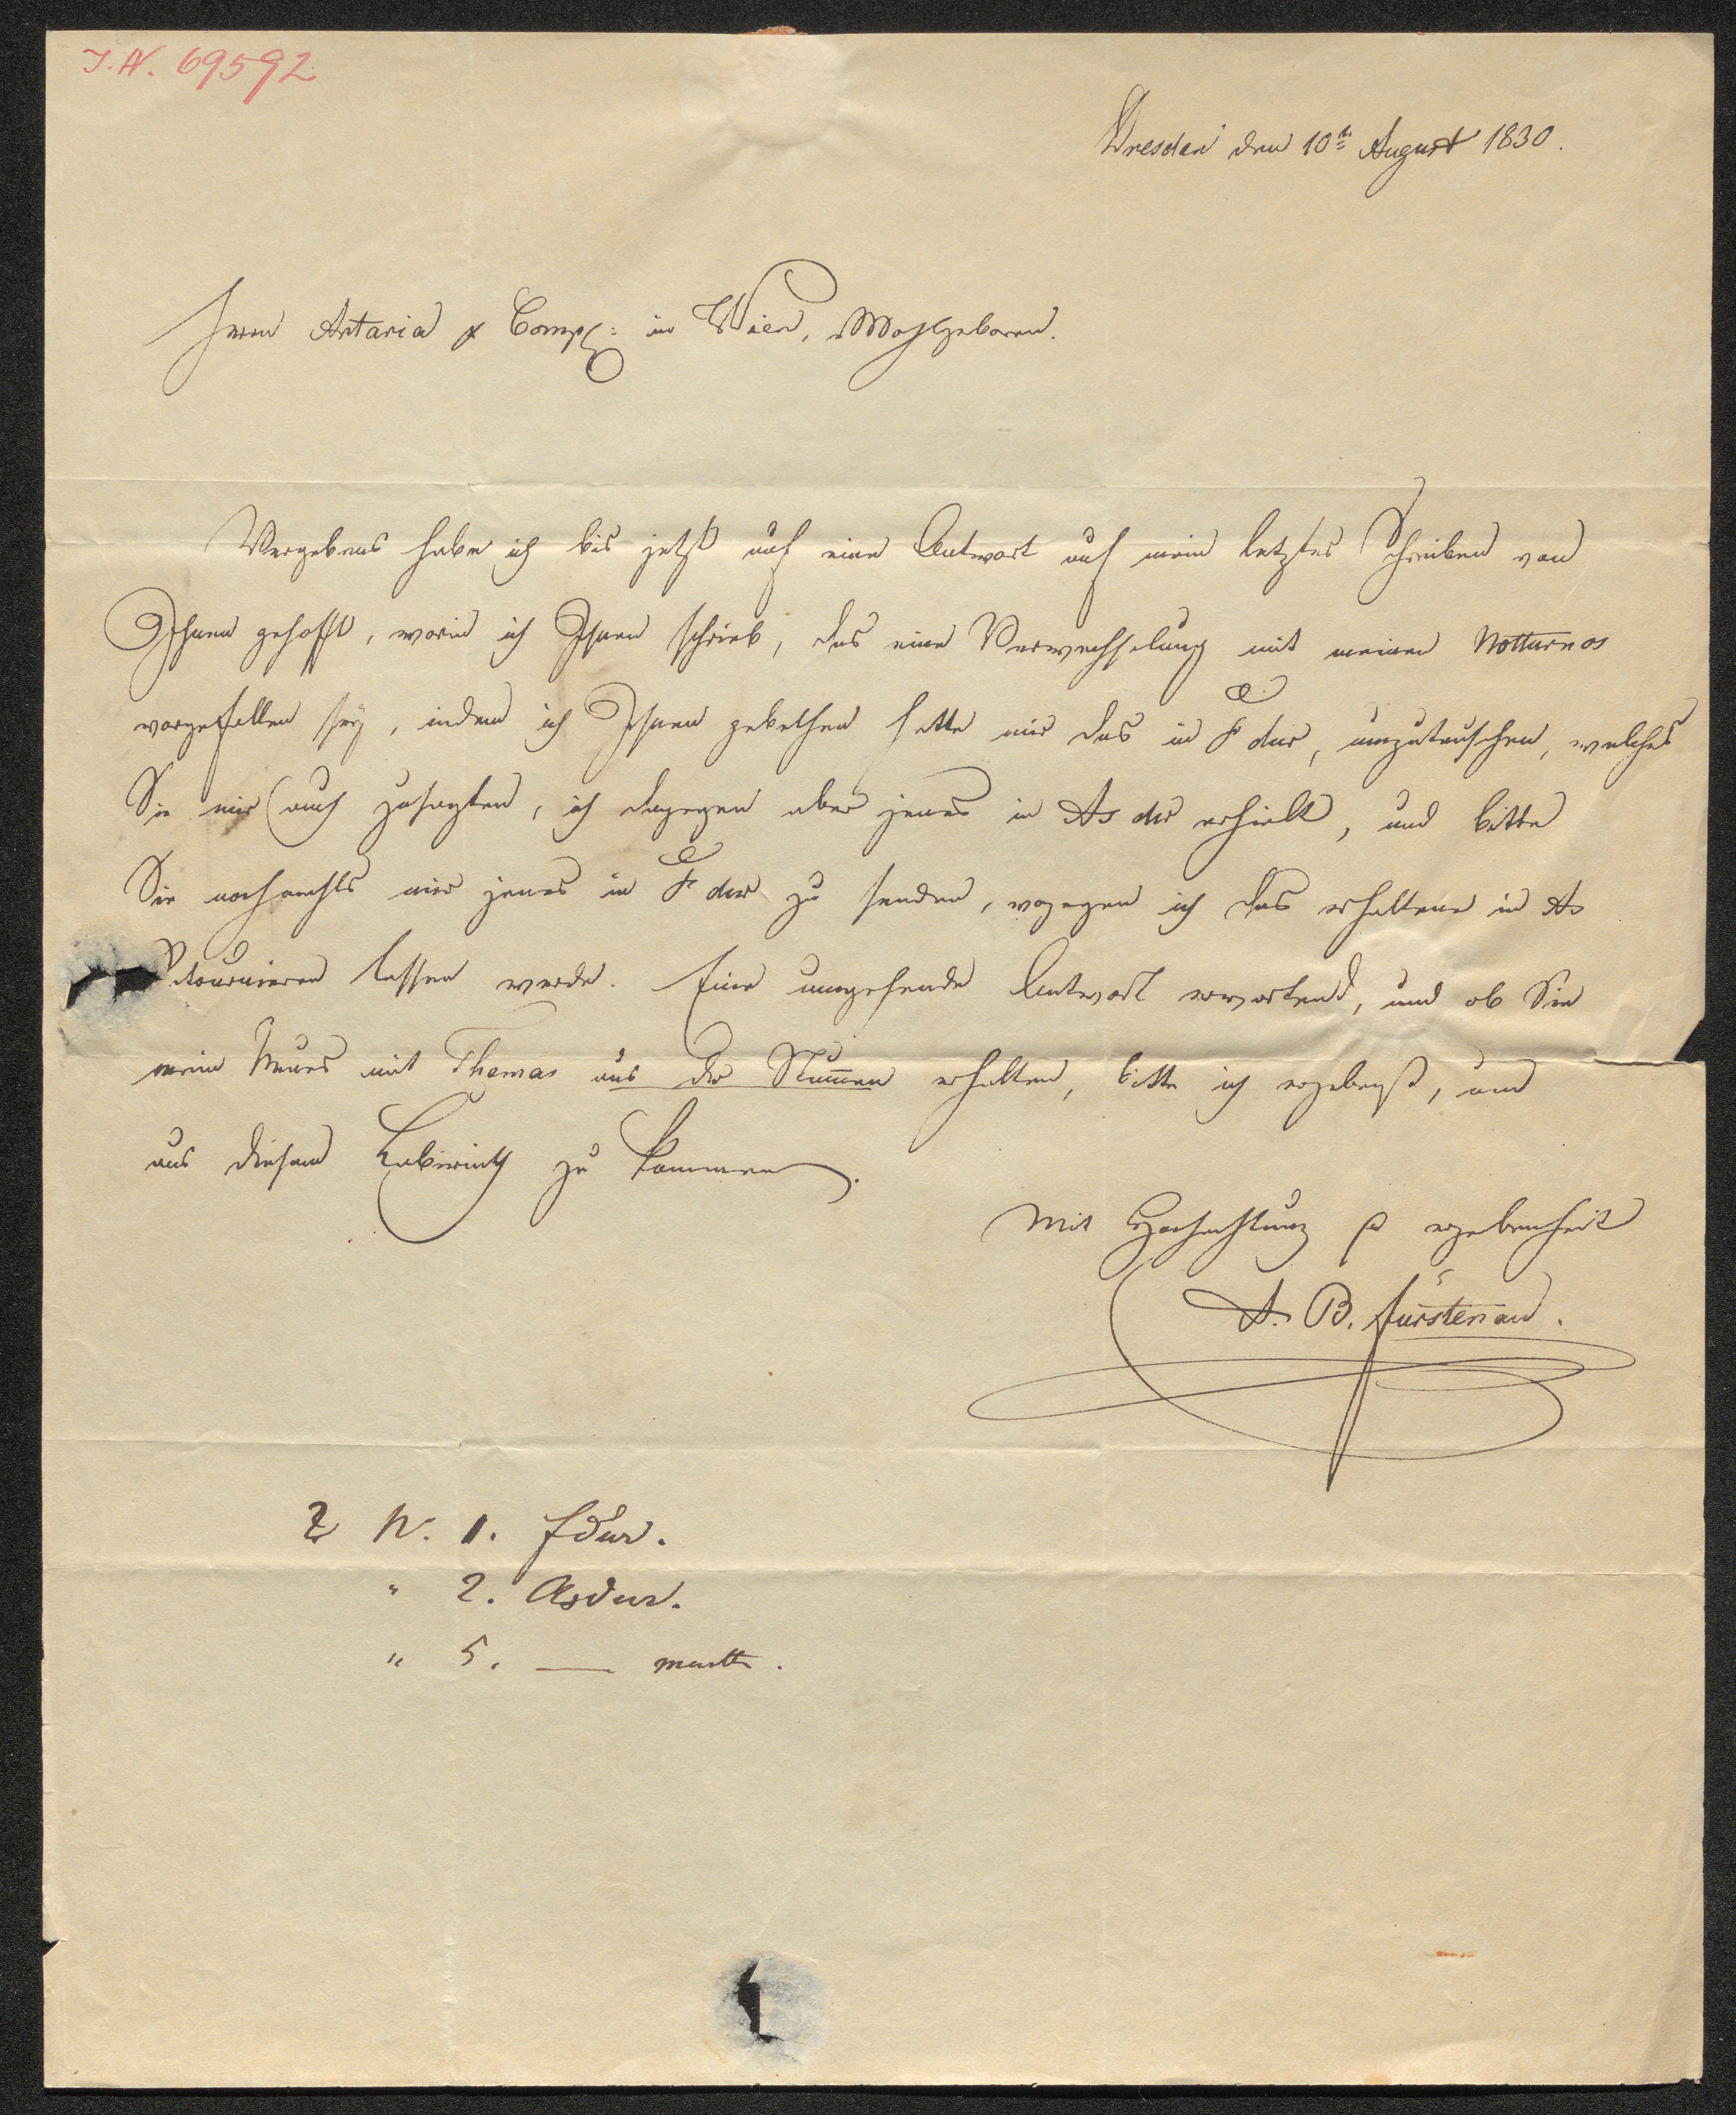 I. N. 69592
Dresden den 10t August 1830.
Herrn Artaria & Comp: in Wien, Wohlgeboren.
Vergebens habe ich bis jetzt auf eine Antwort auf mein letztes Schreiben von
Ihnen gehofft, worin ich Ihnen schrieb, das eine Verwechselung mit meinen Notturnos
vorgefallen sey, indem ich Ihnen gebethen hatte mir das in F dur, umzutauschen, welches
Sie mir auch zusagten, ich dagegen aber jenes in As dur erhielt, und bitte
Sie nochmahls mir jenes in F dur zu senden, wogegen ich das erhaltene in As
retourniren lassen werde. Eine umgehende Antwort erwartend, und ob Sie
mein Neues mit Themas aus der Stummen erhalten, bitte ich ergebenst, um
aus diesem Labirinth zu kommen.
Mit Hochachtung & ergebenheit
A. B. Fürstenau.
N. 1. F dur.
" 2. As dur.
" 5. —